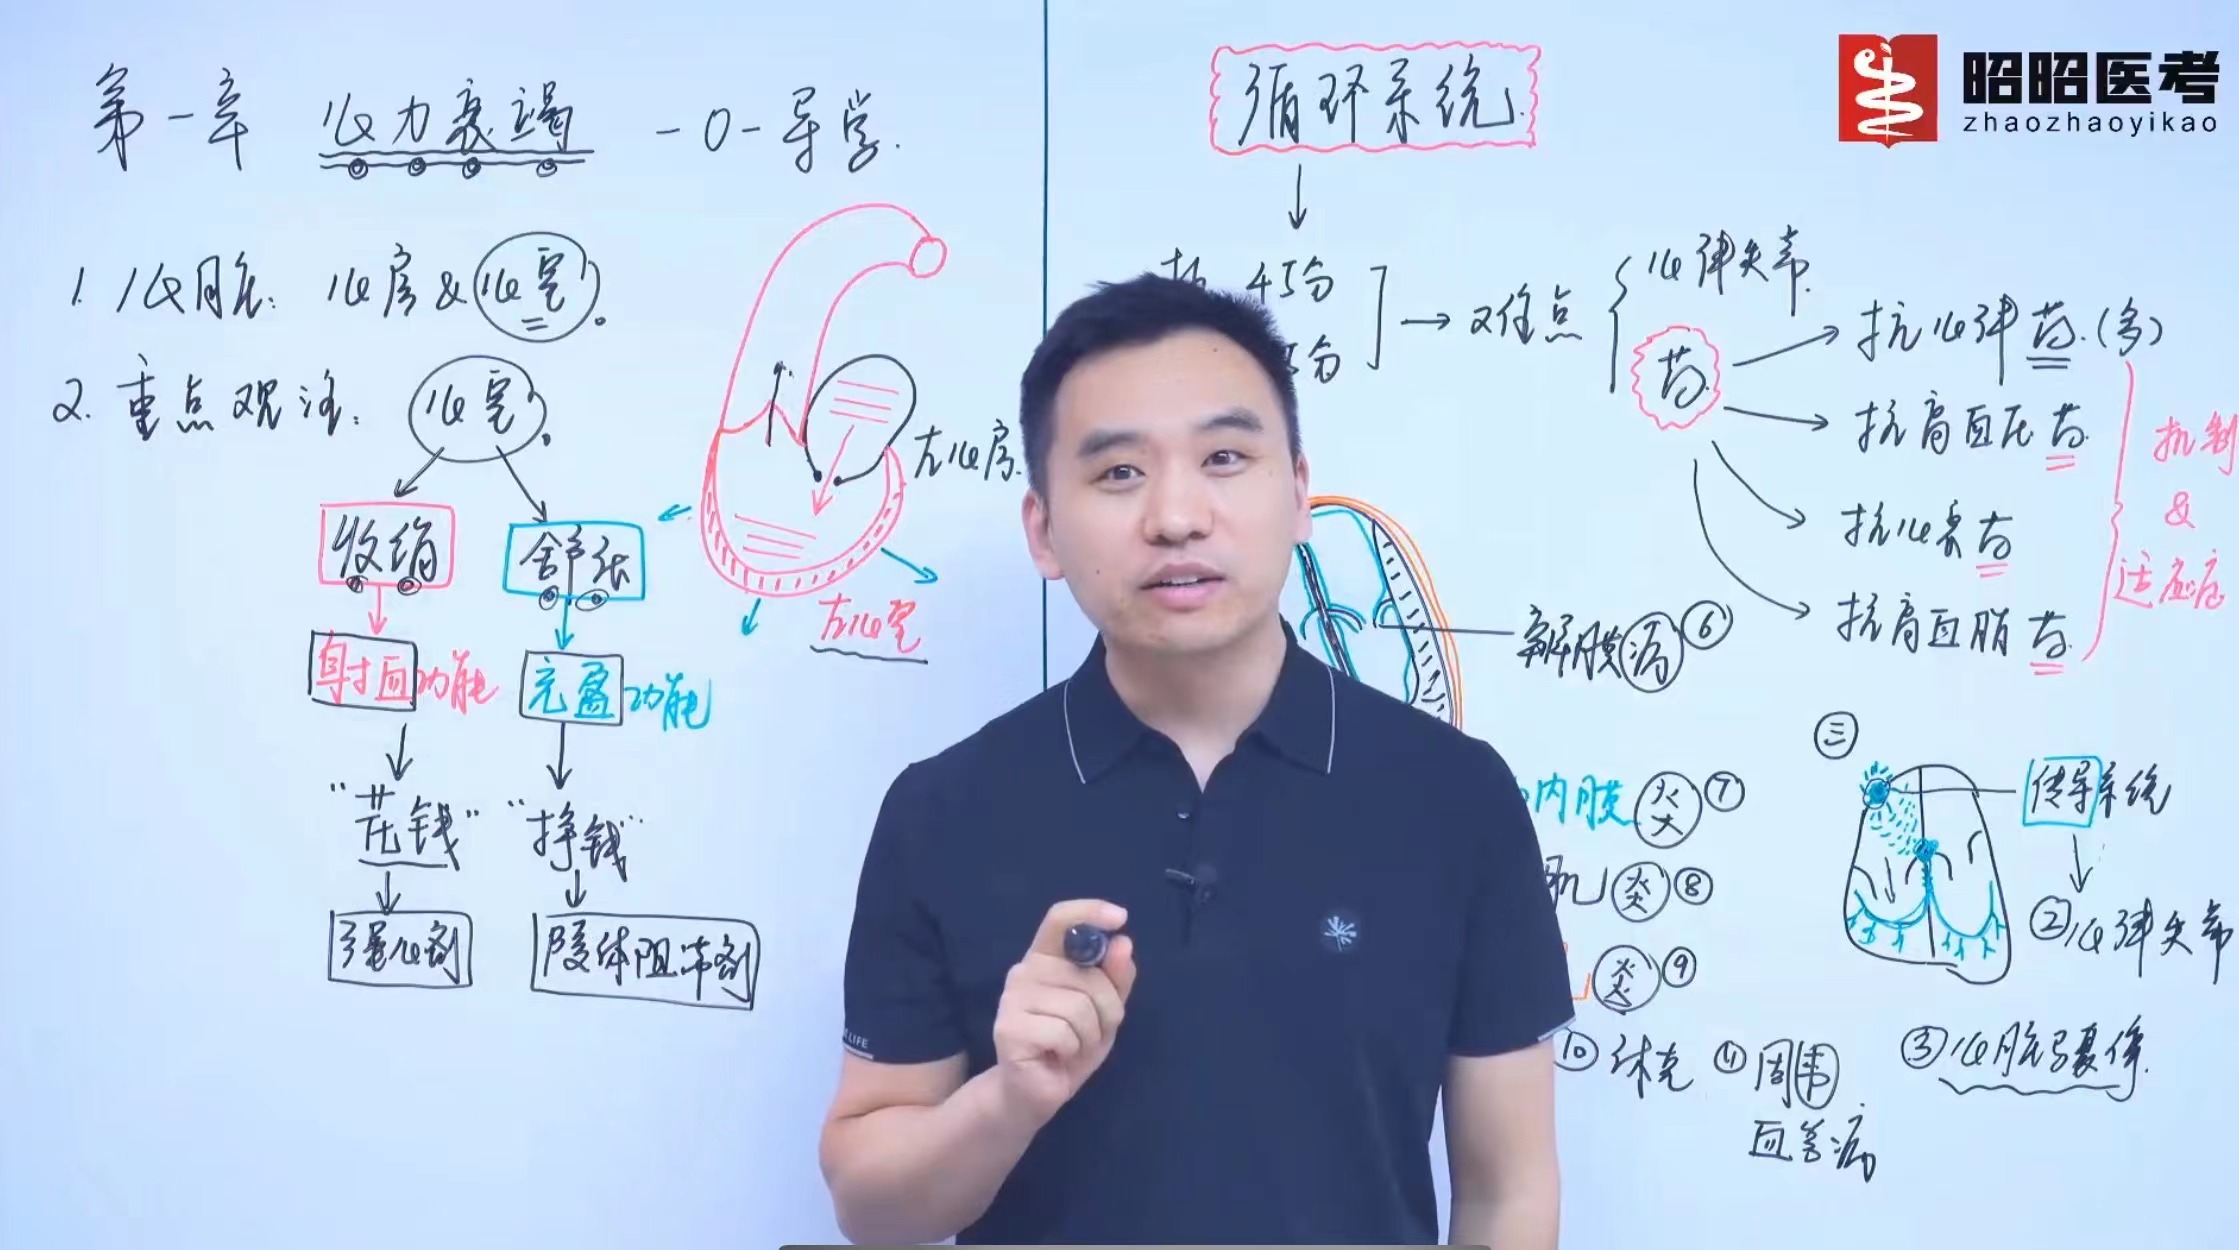 第一章 心力衰竭 -0-导学.
1. 心脏: 心房&心室.
2. 重点观注: 心室.
收缩
舒张
射血功能
充盈功能
"花钱"
"挣钱"
强心剂
β受体阻滞剂
左心房.
左心室
循环系统.
45分
5分
→ 2难点
心律失常.
药
抗心律药.(多)
抗高血压药.
抗心衰药
抗高血脂药.
机制
&
适应症
瓣膜病⑥
内膜炎⑦
肌炎⑧
炎⑨
⑩休克
⑪周围
血管病
㊂
传导系统
②心律失常
③心脏骤停.
昭昭医考
zhaozhaoyikao
LIFE